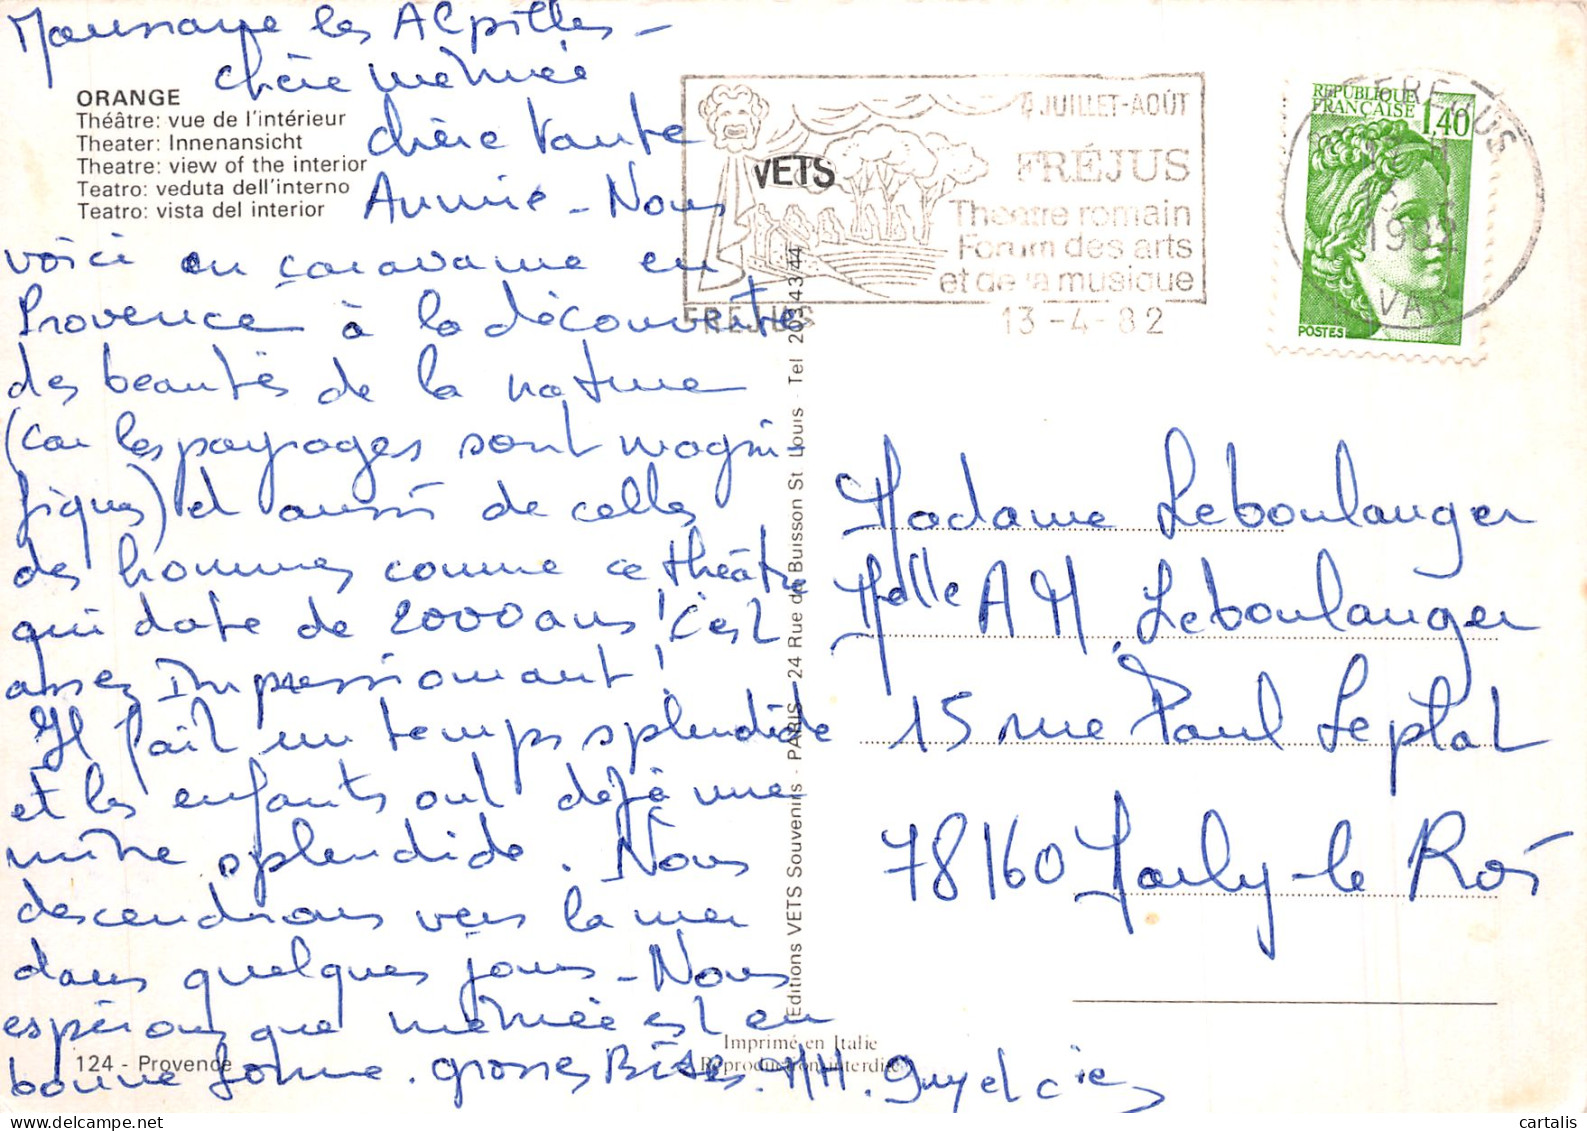 Maussane les Alpilles -
chère mémée
ORANGE
Théâtre: vue de l'intérieur
Theater: Innenansicht
Theatre: view of the interior
Teatro: veduta dell'interno
Teatro: vista del interior
chère tante
Annie - Nous
voici en caravane en
Provence à la découverte
des beautés de la nature
(car les paysages sont magni-
fiques) et aussi de celles
des hommes comme ce théâtre
qui date de 2000 ans! C'est
assez Impressionnant!
Il fait un temps splendide
et les enfants ont déjà une
mine splendide. Nous
descendrons vers la mer
dans quelques jours - Nous
espérons que mémée est en
bonne forme. grosses Bises. MH. Guy et Cie
124 - Provence
Editions VETS Souvenirs - PARIS - 24 Rue du Buisson St Louis - Tel 203 43 44
VETS
Imprimé en Italie
Reproduction interdite
JUILLET-AOÛT
FRÉJUS
Théâtre romain
Forum des arts
et de la musique
FREJUS
13-4-82
REPUBLIQUE
FRANÇAISE
1,40
POSTES
FREJUS
1982
VAR
Madame Leboulanger
Melle A M Leboulanger
15 rue Paul Leplat
78160 Marly-le Roi
cartalis.com